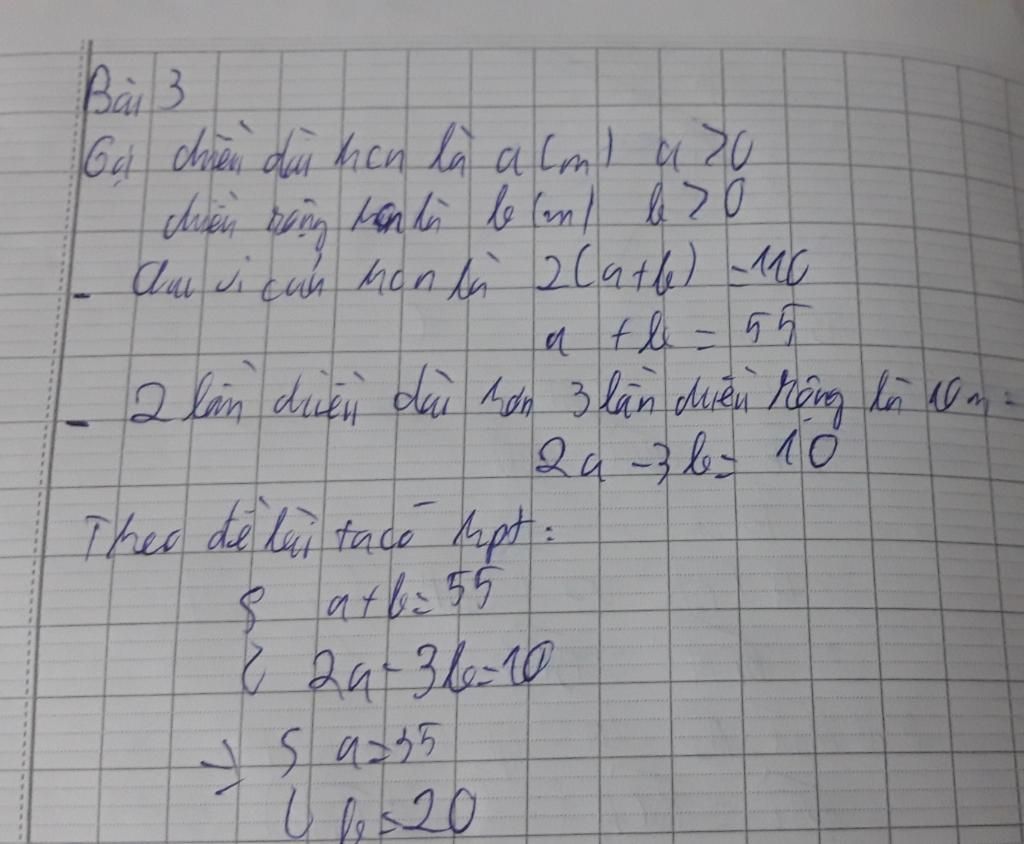 Bài 3
Gọi chiều dài hcn là a (m) a > 0
chiều rộng hcn là b (m) b > 0
- Chu vi của hcn là 2(a+b) = 110
a + b = 55
- 2 lần chiều dài hơn 3 lần chiều rộng là 10m:
2a - 3b = 10
Theo đề bài ta có hpt:
{ a + b = 55
2a - 3b = 10
=> { a = 35
b = 20